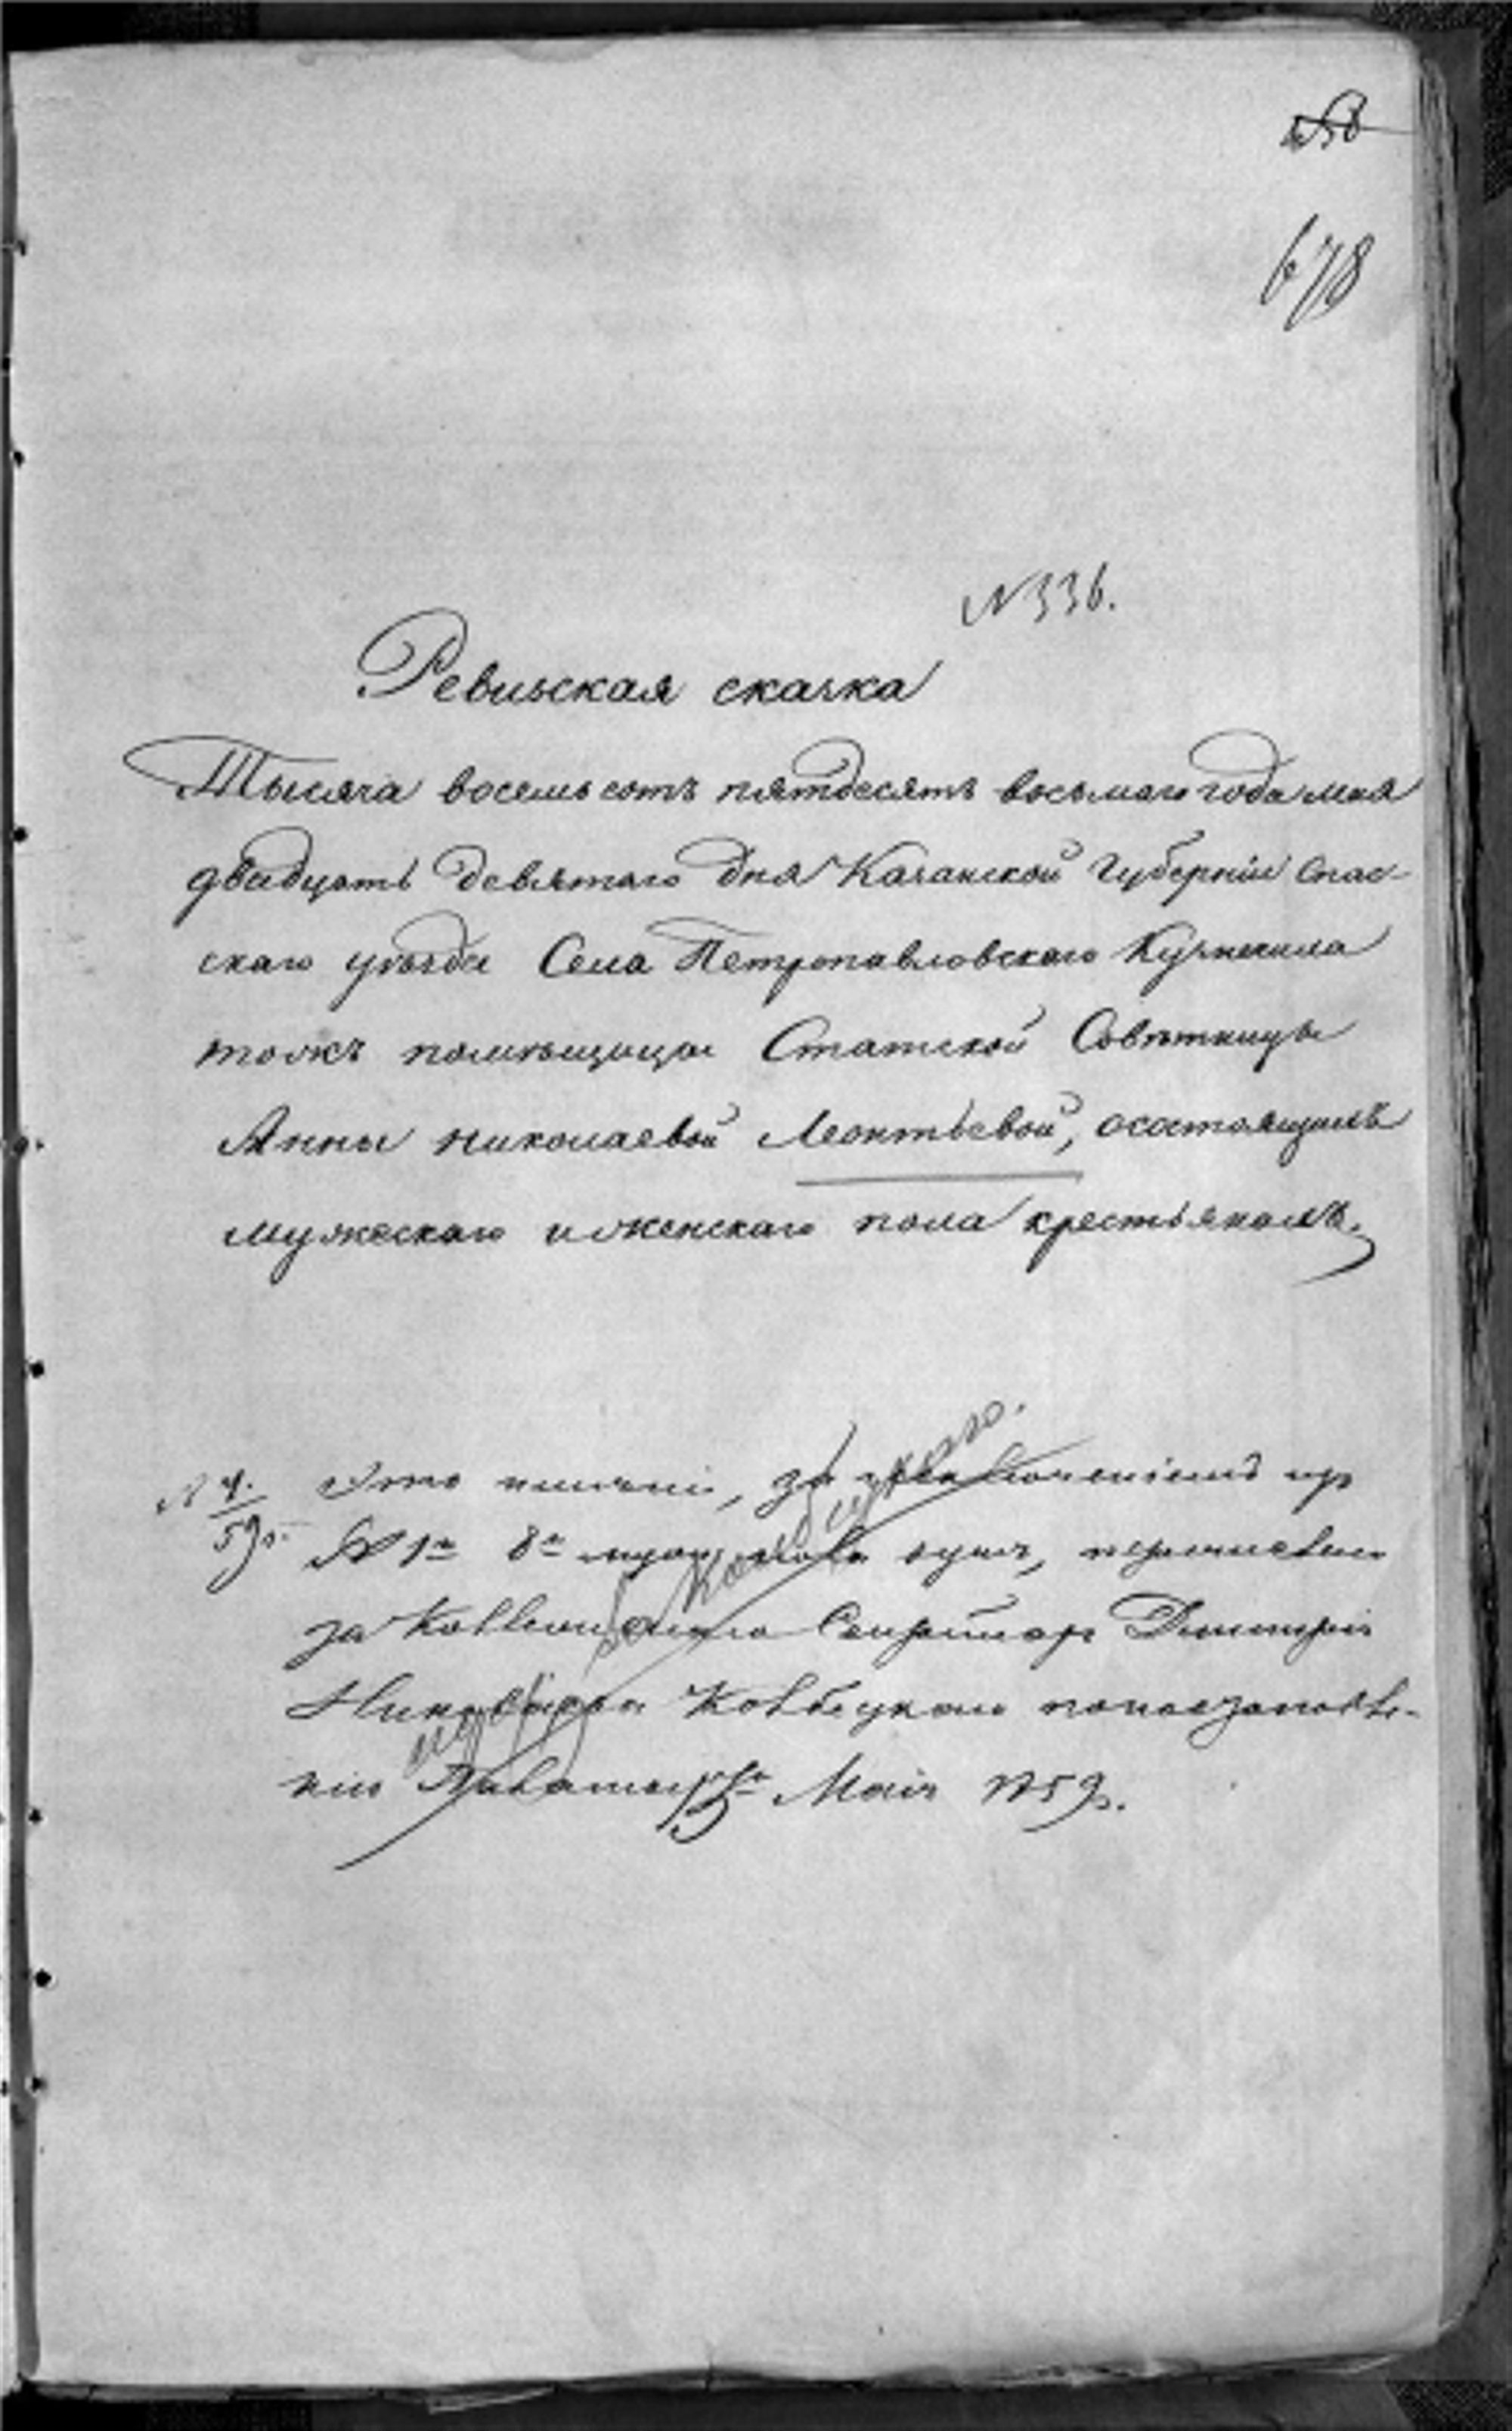 678
N 336.
Ревизская сказка
Тысяча восемьсотъ пятдесятъ восьмаго года мая
двадцать девятаго дня Казанской Губерніи Спас-
скаго уѣзда Села Петропавловскаго Кузнечиха
тожъ помѣщицы Статской Совѣтницы
Анны Николаевой Леонтьевой, осостоящихъ
мужескаго и женскаго пола крестьянахъ.
Это имѣніе, за исключеніемъ
№ 1го 8 душъ, перечислено
за Коллежскаго Секретаря Димитрія
Николаева Колбецкаго по постановле-
нію Палаты Маія 1859.
Колбецкаго.